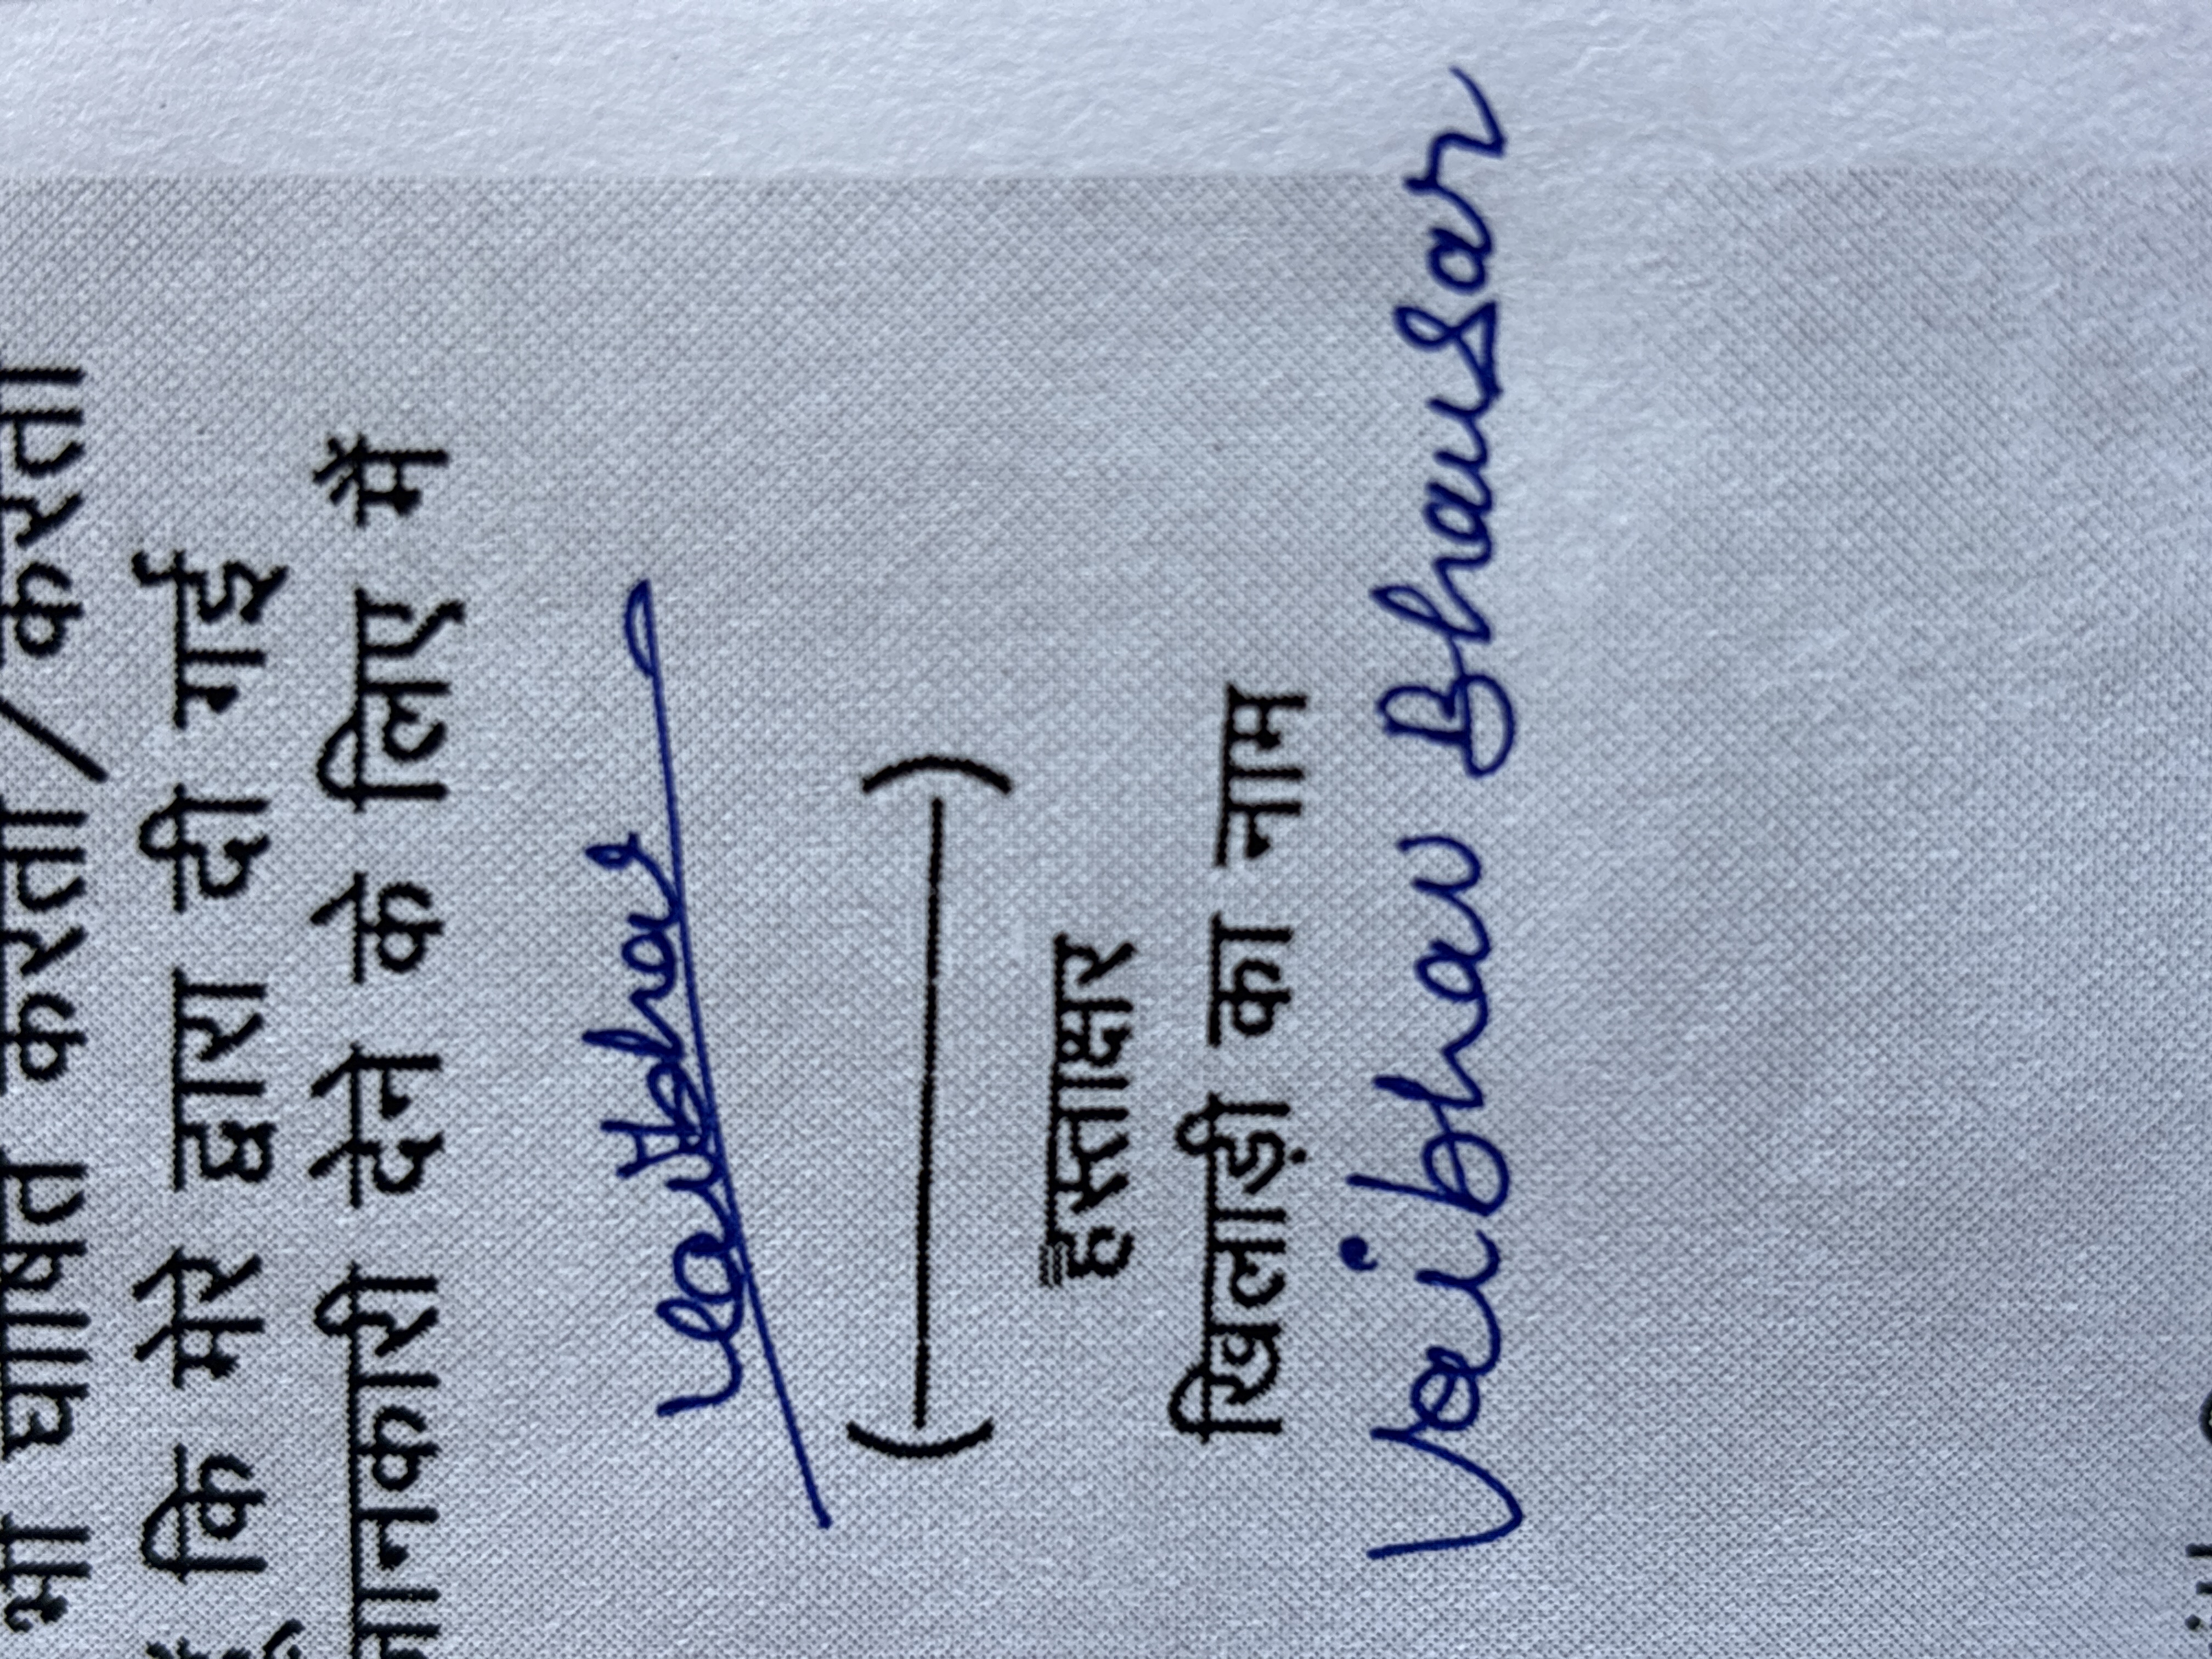 भी घोषित करता/करती
कि मेरे द्वारा दी गई
जानकारी देने के लिए मैं
Vaibhav
(———)
हस्ताक्षर
खिलाड़ी का नाम
Vaibhav Bhausar